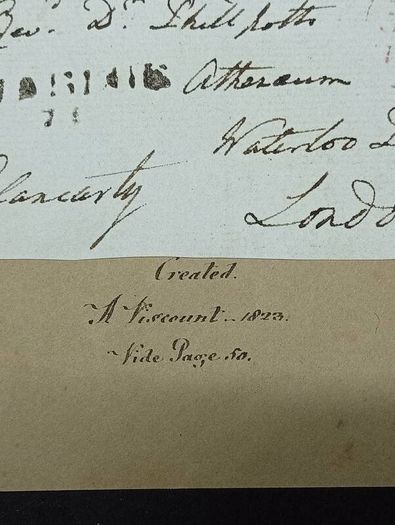 Rev.d Dr. Phillpotts
Athenæum
Waterloo
Clancarty
London
Created.
A Viscount _ 1823.
Vide Page 50.